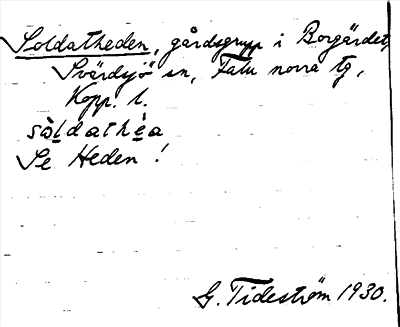 Soldatheden, gårdsgrupp i Borgärdet,
Svärdsjö sn, Falu norra tg,
Kopp. l.
sòldathèa
Se Heden!
G. Tideström 1930.